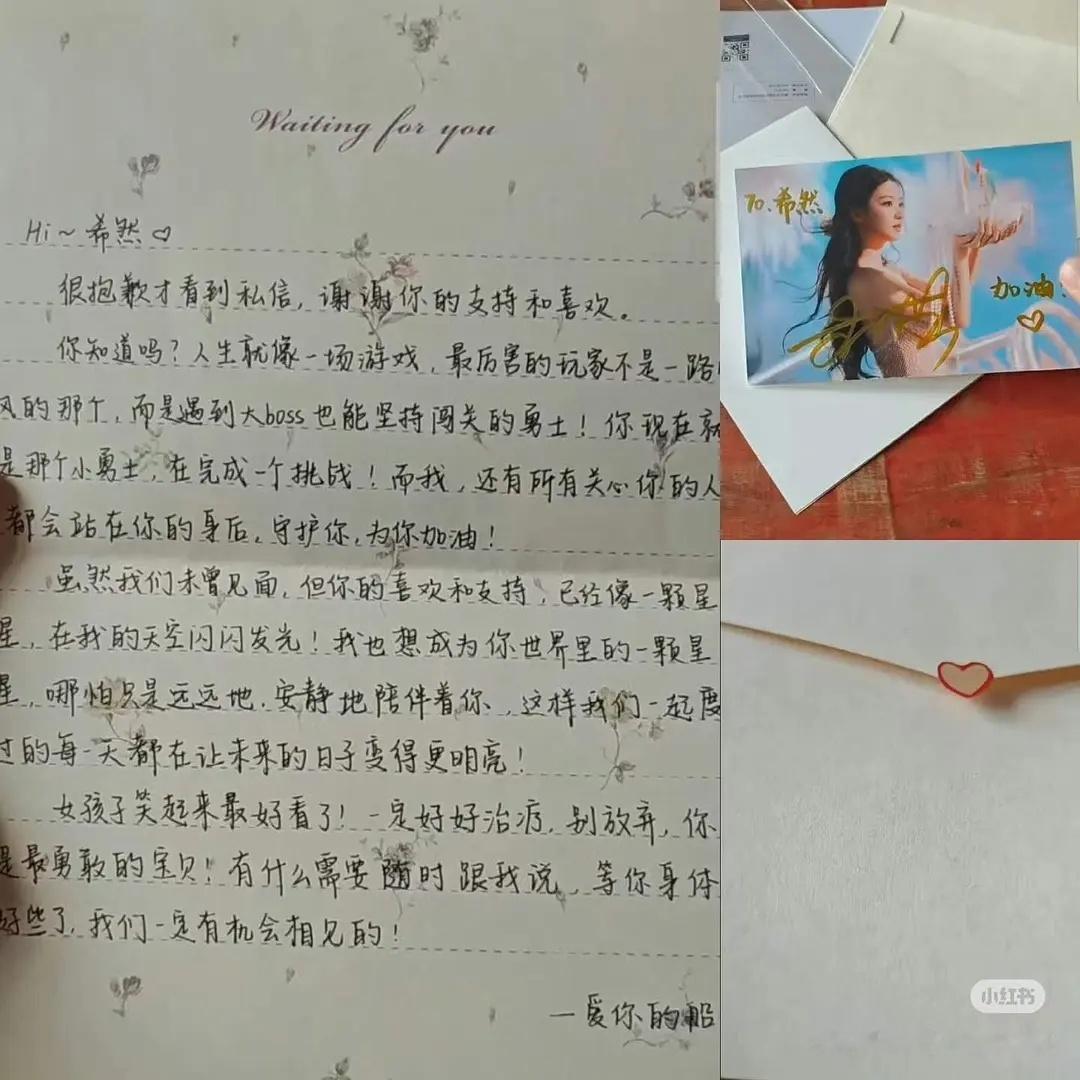 Waiting for you
Hi~希然♡
很抱歉才看到私信，谢谢你的支持和喜欢。
你知道吗？人生就像一场游戏，最厉害的玩家不是一路
风的那个，而是遇到大boss也能坚持闯关的勇士！你现在就
是那个小勇士，在完成一个挑战！而我，还有所有关心你的人
都会站在你的身后，守护你，为你加油！
虽然我们未曾见面，但你的喜欢和支持，已经像一颗星
星，在我的天空闪闪发光！我也想成为你世界里的一颗星
星，哪怕只是远远地、安静地陪伴着你，这样我们一起度
过的每一天都在让未来的日子变得更明亮！
女孩子笑起来最好看了！一定好好治疗，别放弃，你
是最勇敢的宝贝！有什么需要随时跟我说，等你身体
好些了，我们一定有机会相见的！
—爱你的船
TO.希然
加油.
♡
小红书